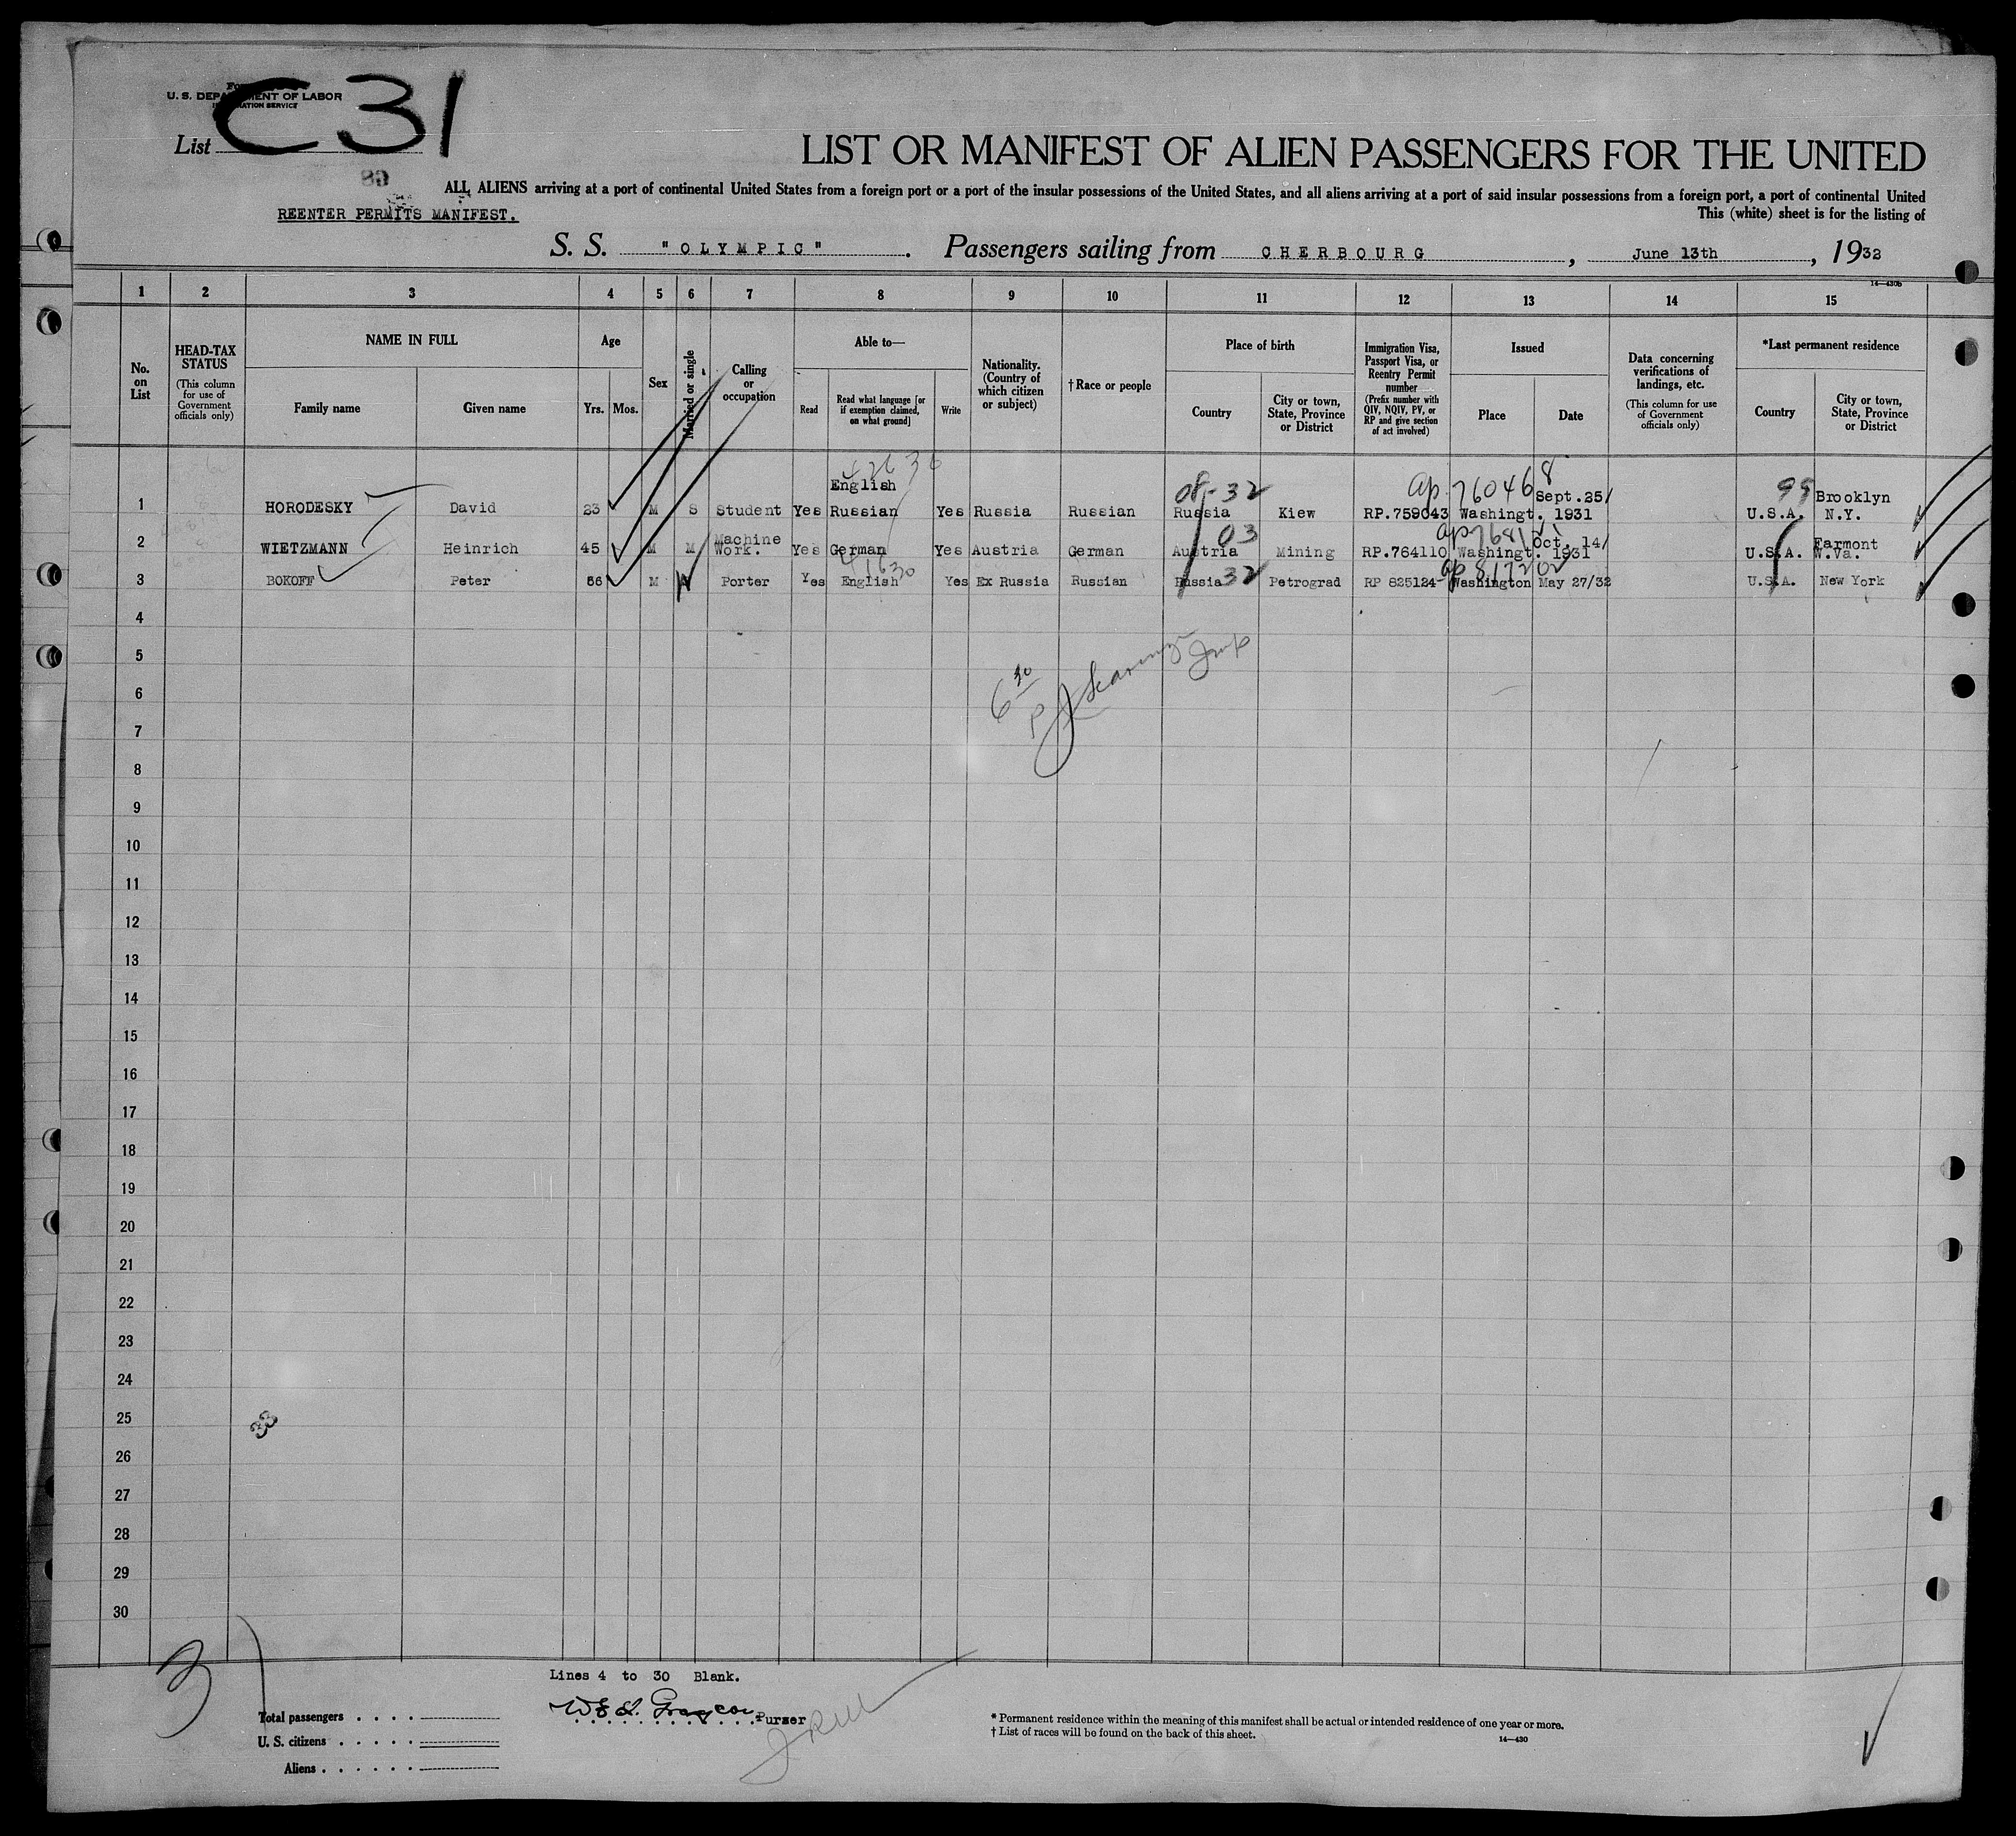 U. S. DEPARTMENT OF LABOR
IMMIGRATION SERVICE
List C31
LIST OR MANIFEST OF ALIEN PASSENGERS FOR THE UNITED
80
ALL ALIENS arriving at a port of continental United States from a foreign port or a port of the insular possessions of the United States, and all aliens arriving at a port of said insular possessions from a foreign port, a port of continental United
REENTER PERMITS MANIFEST.
This (white) sheet is for the listing of
S. S. "OLYMPIC". Passengers sailing from CHERBOURG, June 13th, 1932
14—430b
1 2 3 4 5 6 7 8 9 10 11 12 13 14 15
No. on List
HEAD-TAX STATUS (This column for use of Government officials only)
NAME IN FULL
Family name Given name
Age
Yrs. Mos.
Sex
Married or single
Calling or occupation
Able to—
Read Read what language [or if exemption claimed, on what ground] Write
Nationality. (Country of which citizen or subject)
†Race or people
Place of birth
Country City or town, State, Province or District
Immigration Visa, Passport Visa, or Reentry Permit number (Prefix number with QIV, NQIV, PV, or RP and give section of act involved)
Issued
Place Date
Data concerning verifications of landings, etc. (This column for use of Government officials only)
*Last permanent residence
Country City or town, State, Province or District
42636
English 08-32 ap 760468 Sept.25/ 99 Brooklyn
1 HORODESKY David 23 M S Student Yes Russian Yes Russia Russian Russia Kiew RP.759043 Washingt. 1931 U.S.A. N.Y.
Machine 03 Oct. 14/ Farmont
2 WIETZMANN Heinrich 45 M M Work. Yes German Yes Austria German Austria Mining RP.764110 Washingt. 1931 U.S.A. W.Va.
41630 32 ap 817202
3 BOKOFF Peter 56 M Porter Yes English Yes Ex Russia Russian Russia Petrograd RP 825124 Washington May 27/32 U.S.A. New York
4
5
6
6 30
7
8
9
10
11
12
13
14
15
16
17
18
19
20
21
22
23
24
25
33
26
27
28
29
30
3
Lines 4 to 30 Blank.
Purser
Total passengers
U. S. citizens
Aliens
* Permanent residence within the meaning of this manifest shall be actual or intended residence of one year or more.
† List of races will be found on the back of this sheet.
14—430